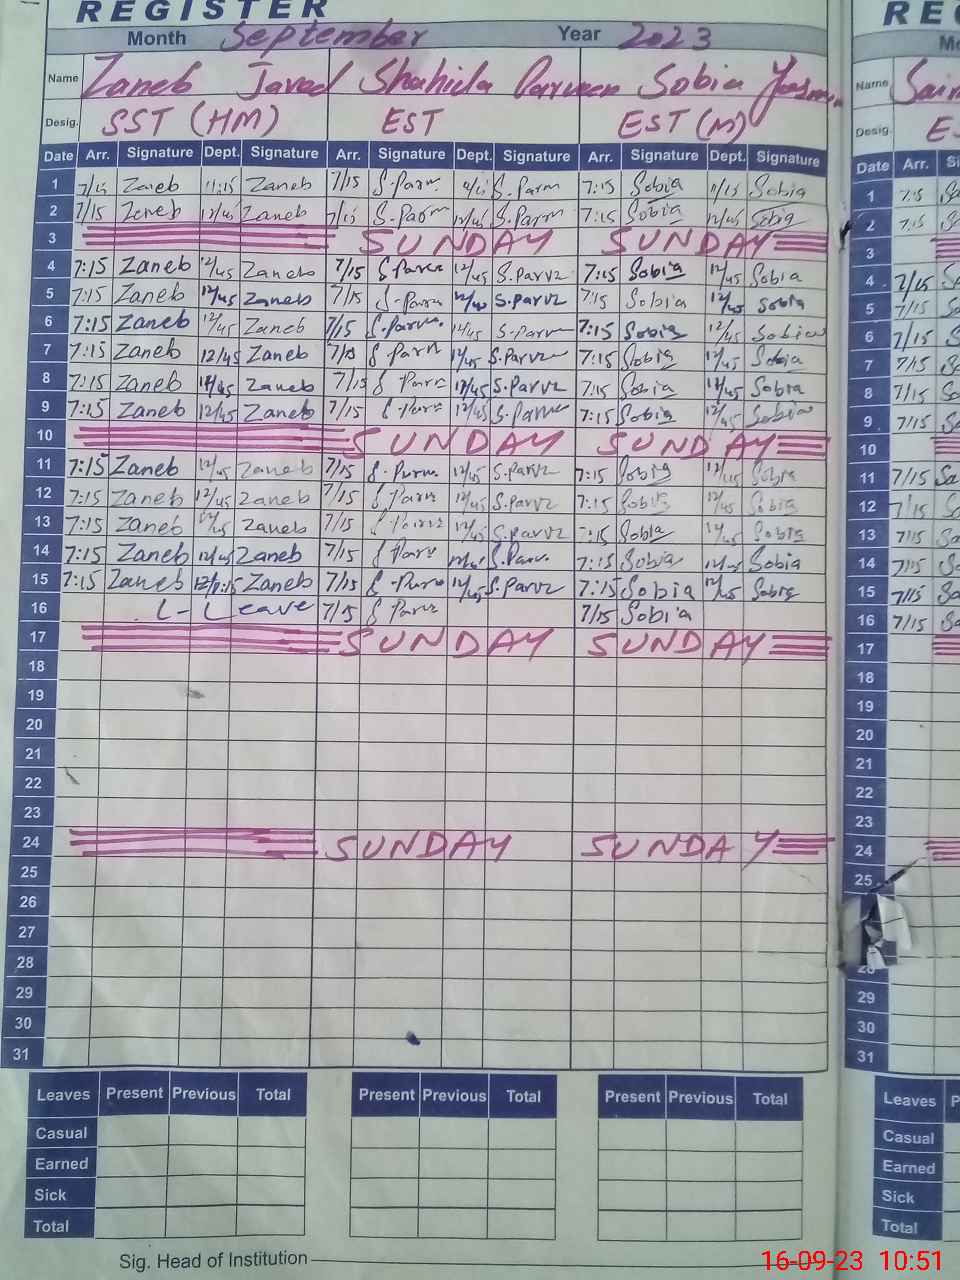 REGISTER
Month September Year 2023
Name Zaneb Javed Shahida Parveen Sobia Yasmin
Desig. SST (HM) EST EST (M)
Date Arr. Signature Dept. Signature Arr. Signature Dept. Signature Arr. Signature Dept. Signature
1 7/15 Zaneb 11:15 Zaneb 7/15 S.Parv 7:15 Sobia 11/15 Sobia
2 7/15 Zaneb 12/45 Zaneb 7/15 S.Parv 12/45 S.Parv 7:15 Sobia 12/45 Sobia
3 SUNDAY SUNDAY
4 7:15 Zaneb 12/45 Zaneb 7/15 S Parvz 12/45 S.Parvz 7:15 Sobia 12/45 Sobia
5 7:15 Zaneb 12/45 Zaneb 7/15 S.Parv S.Parvz 7:15 Sobia 12/45 Sobia
6 7:15 Zaneb 12/45 Zaneb 7/15 S.Parvz 12/45 S-Parvz 7:15 Sobia 12/45 Sobia
7 7:15 Zaneb 12/45 Zaneb 7/15 S Parv 12/45 S.Parvz 7:15 Sobia 12/45 Sobia
8 7:15 Zaneb 12/45 Zaneb 7/15 S Parv 12/45 S.Parvz 7:15 Sobia 12/45 Sobia
9 7:15 Zaneb 12/45 Zaneb 7/15 S Parv 12/45 S.Parvz 7:15 Sobia 12/45 Sobia
10 SUNDAY SUNDAY
11 7:15 Zaneb 12/45 Zaneb 7/15 S.Parv 12/45 S.Parvz 7:15 Sobia 12/45 Sobia
12 7:15 Zaneb 12/45 Zaneb 7/15 S Parv 12/45 S.Parvz 7:15 Sobia 12/45 Sobia
13 7:15 Zaneb 12/45 Zaneb 7/15 S Parvz 12/45 S.Parvz 7:15 Sobia 12/45 Sobia
14 7:15 Zaneb 12/45 Zaneb 7/15 S Parv S.Parv 7:15 Sobia 12/45 Sobia
15 7:15 Zaneb Zaneb 7/15 S-Parv 12/45 S.Parvz 7:15 Sobia 12/45 Sobia
16 L-Leave 7/15 S Parvz 7/15 Sobia
17 SUNDAY SUNDAY
18
19
20
21
22
23
24 SUNDAY SUNDAY
25
26
27
28
29
30
31
Leaves Present Previous Total Present Previous Total Present Previous Total
Casual
Earned
Sick
Total
Sig. Head of Institution
Name
Desig.
Date Arr.
1 7:15
2 7:15
3
4 7/15
5 7/15
6 7/15
7 7/15
8 7/15
9 7/15
10
11 7/15
12 7/15
13 7/15
14 7/15
15 7/15
16 7/15
17
18
19
20
21
22
23
24
25
29
30
31
Leaves
Casual
Earned
Sick
Total
16-09-23 10:51